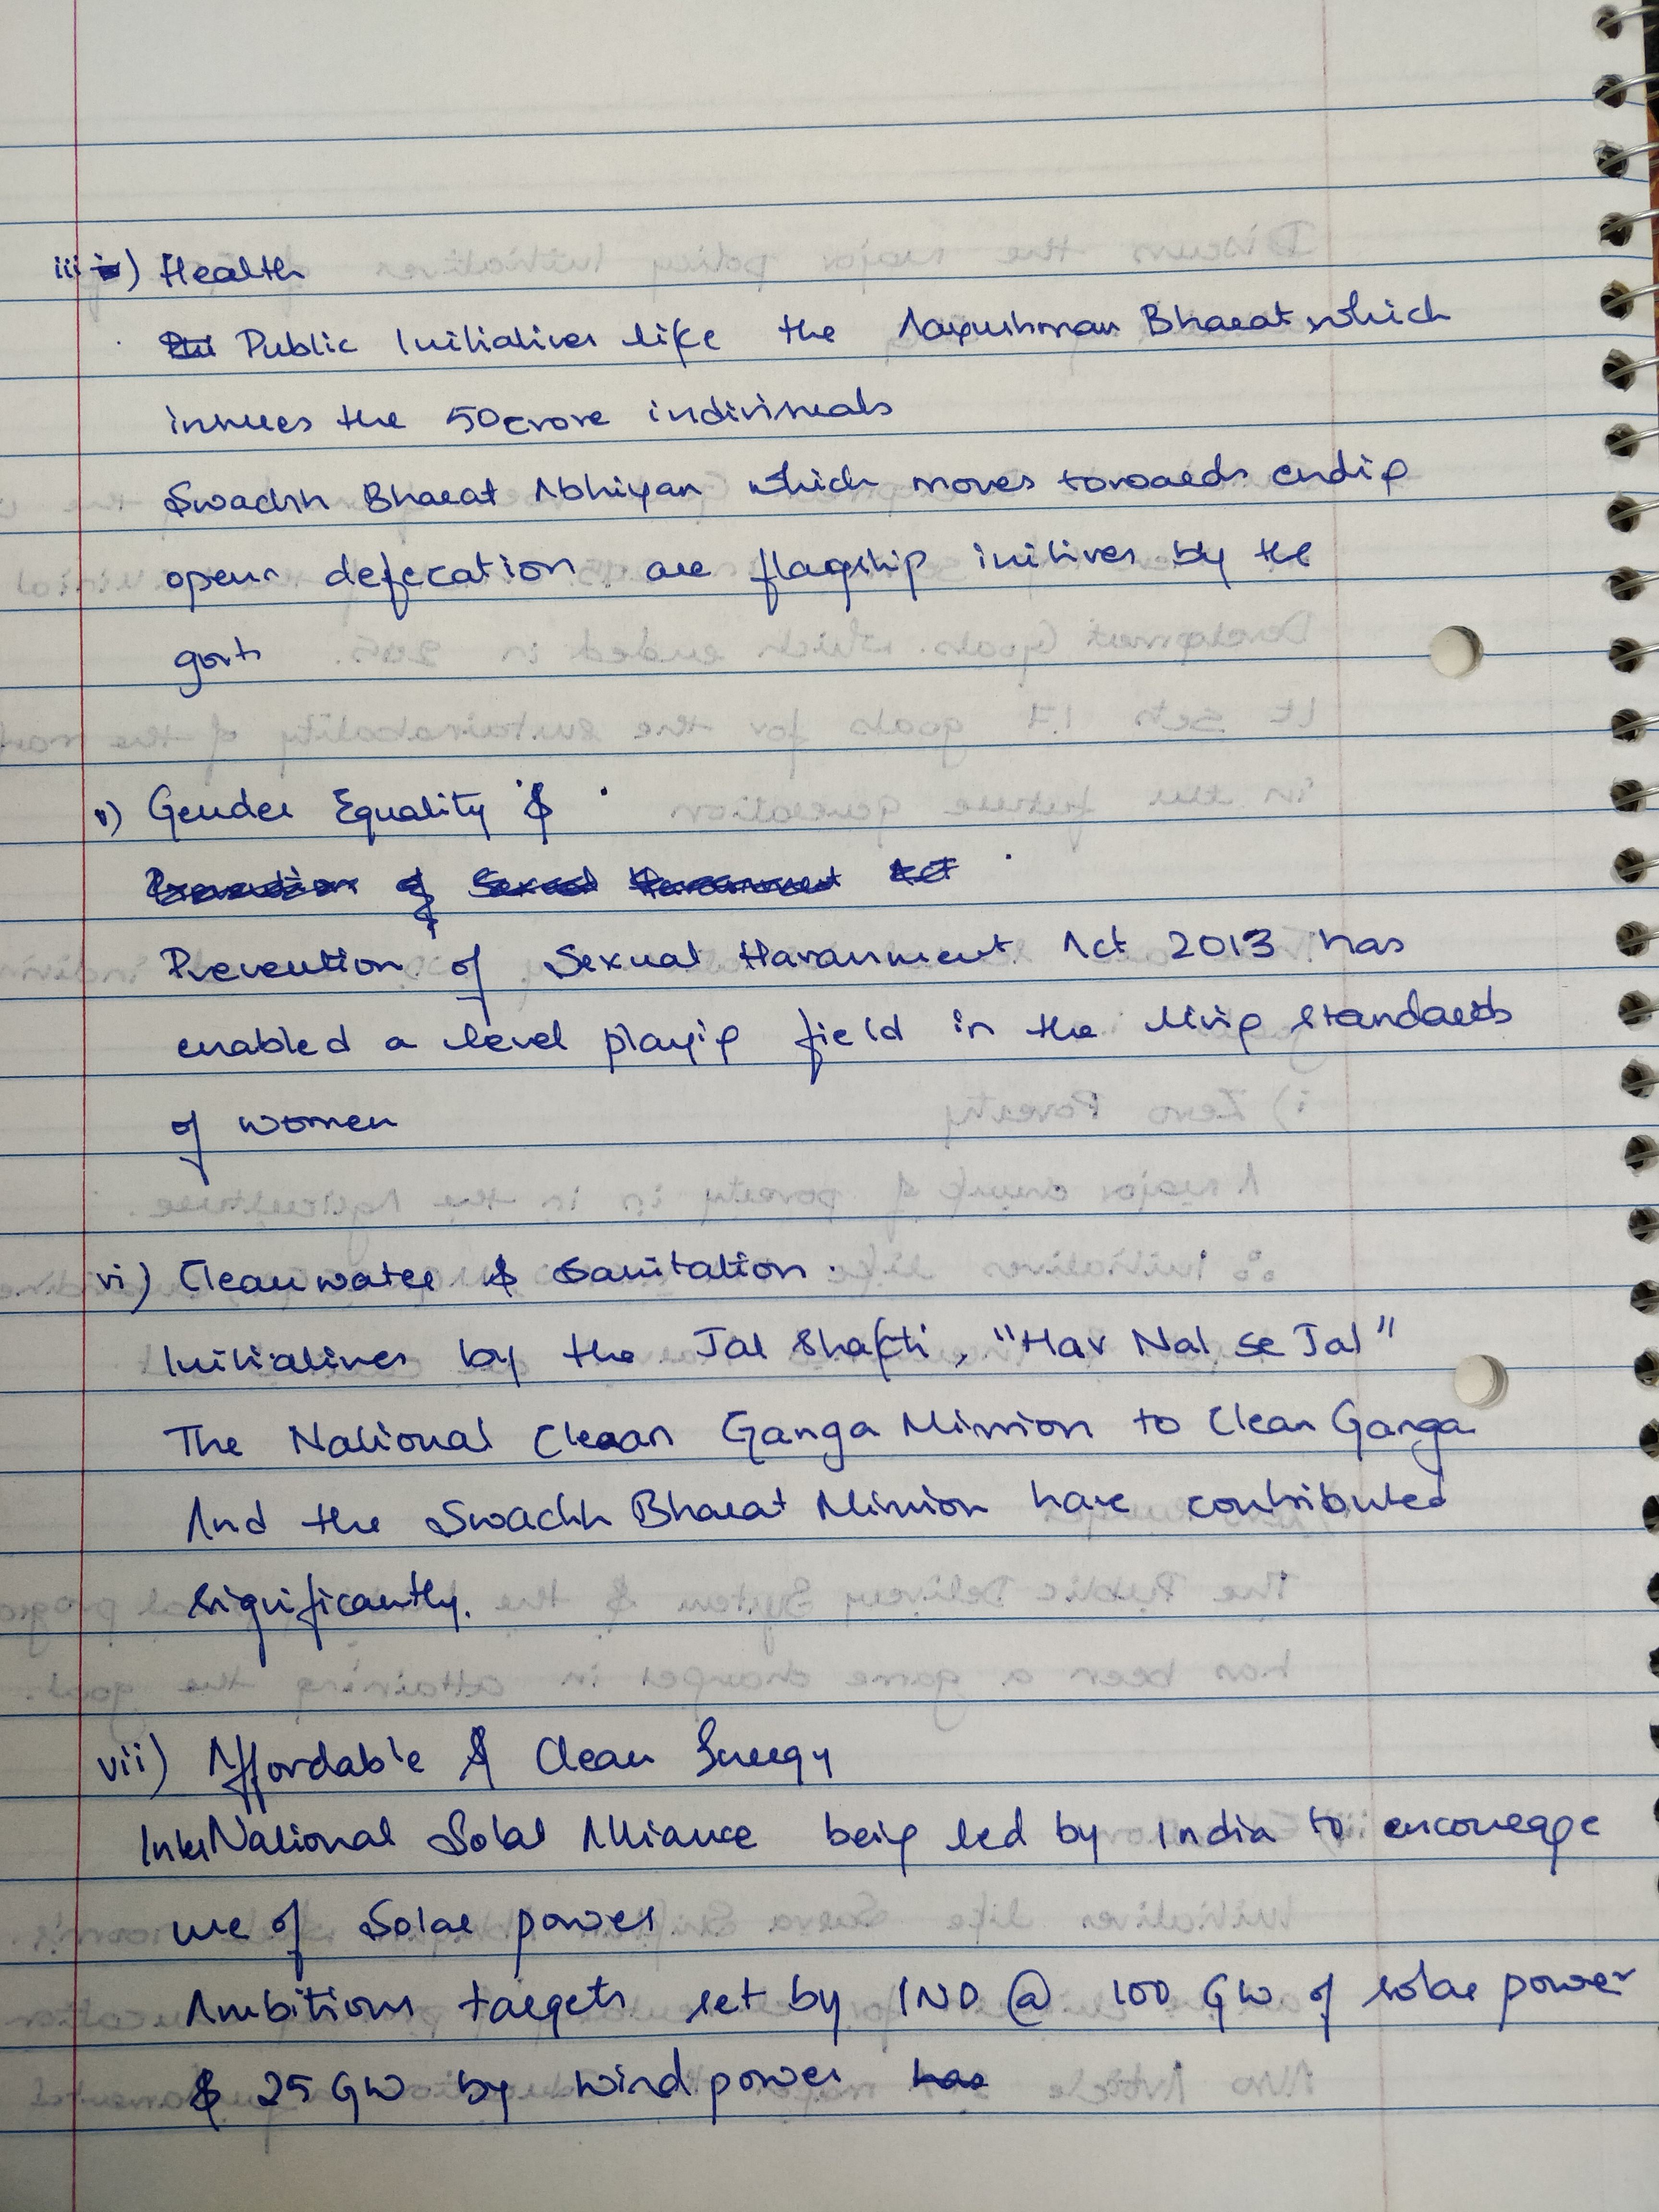 iii) Health
Public Initiatives like the Aayushman Bharat, which
insures the 50 crore individuals
Swachh Bharat Abhiyan which moves towards endig
open defecation are flagship initives by the
govt
v) Gender Equality &
Prevention of Sexual Harassment Act
Prevention of Sexual Harassment Act 2013 has
enabled a level playig field in the livig standards
of women
vi) Clean water & Sanitation.
Initiatives by the Jal Shakti, "Har Nal se Jal"
The National Clean Ganga Mission to Clean Ganga
And the Swachh Bharat Mission have contributed
significantly.
vii) Affordable & Clean Energy
InterNational Solal Alliance beig led by India to encourage
use of Solar power
Ambitious targets set by IND @ 100 GW of solar power
& 25 GW by wind power has